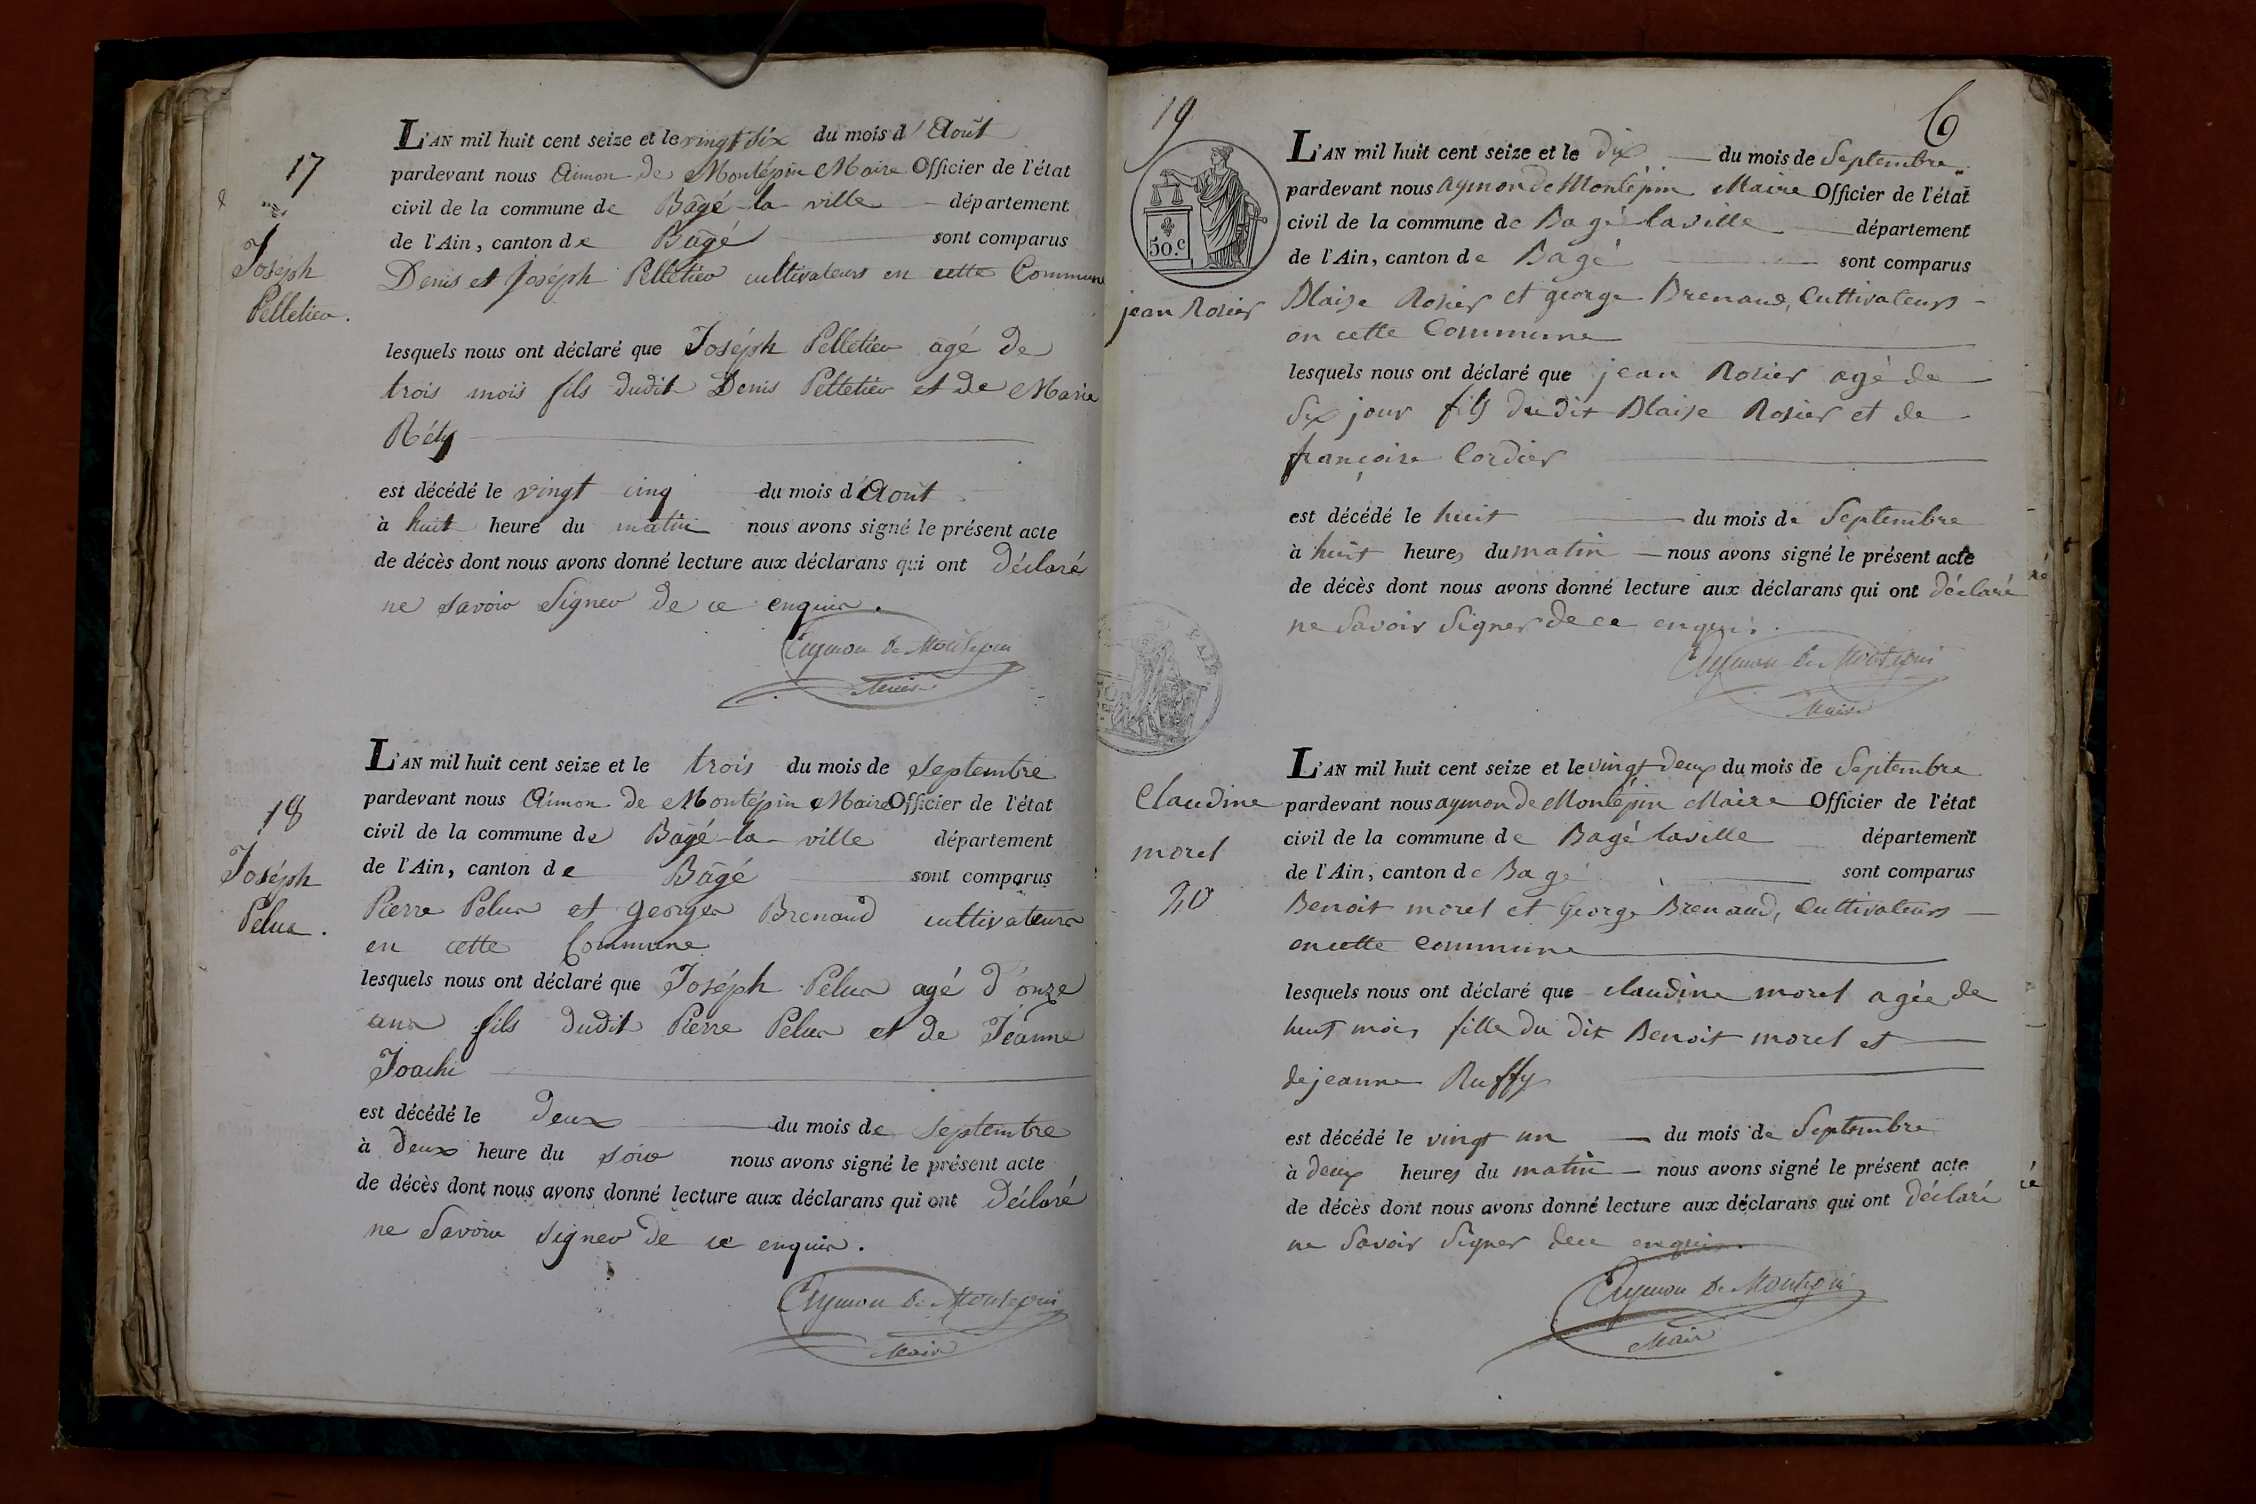 17
Joséph
Pelletier.
L'AN mil huit cent seize et le vingt six du mois d'Août
pardevant nous Aimon de Montépin Maire Officier de l'état
civil de la commune de Bagé-la-ville département
de l'Ain, canton de Bagé sont comparus
Denis et Joséph Pelletier cultivateurs en cette Commune
lesquels nous ont déclaré que Joséph Pelletier agé de
trois mois fils dudit Denis Pelletier et de Marie
Réty
est décédé le vingt cinq du mois d'Août
à huit heure du matin nous avons signé le présent acte
de décès dont nous avons donné lecture aux déclarans qui ont déclaré
ne savoir signer de ce enquis.
Aymon de Montepin
Maire
18
Joséph
Pelus.
L'AN mil huit cent seize et le trois du mois de septembre
pardevant nous Aimon de Montépin Maire Officier de l'état
civil de la commune de Bagé-la-ville département
de l'Ain, canton de Bagé sont comparus
Pierre Pelus et georges Brenaud cultivateurs
en cette Commune
lesquels nous ont déclaré que Joséph Pelus agé d'onze
ans fils dudit Pierre Pelus et de Jeanne
Joachi
est décédé le deux du mois de septembre
à deux heure du soir nous avons signé le présent acte
de décès dont nous avons donné lecture aux déclarans qui ont déclaré
ne savoir signer de ce enquis.
Aymon de Montepin
Maire
19
6
50.c
jean Rosier
L'AN mil huit cent seize et le dix du mois de Septembre
pardevant nous aymon de Montépin Maire Officier de l'état
civil de la commune de Bagé laville département
de l'Ain, canton de Bagé sont comparus
Blaise Rosier et george Brenaud, Cultivateurs
en cette Commune
lesquels nous ont déclaré que jean Rosier agé de
six jour fils du dit Blaise Rosier et de
françoise Cordier
est décédé le huit du mois de Septembre
à huit heures du matin nous avons signé le présent acte
de décès dont nous avons donné lecture aux déclarans qui ont déclaré
ne Savoir Signer de ce enquis.
Aymon de Montepin
Maire
Claudine
morel
20
L'AN mil huit cent seize et le vingt deux du mois de Septembre
pardevant nous aymon de Montépin Maire Officier de l'état
civil de la commune de Bagé laville département
de l'Ain, canton de Bagé sont comparus
Benoit morel et George Brenaud, Cultivateurs
en cette Commune
lesquels nous ont déclaré que claudine morel agée de
huit mois fille du dit Benoit morel et
de jeanne Ruffy
est décédé le vingt un du mois de Septembre
à deux heures du matin nous avons signé le présent acte
de décès dont nous avons donné lecture aux déclarans qui ont déclaré
ne Savoir Signer de ce enquis.
Aymon de Montepin
Maire